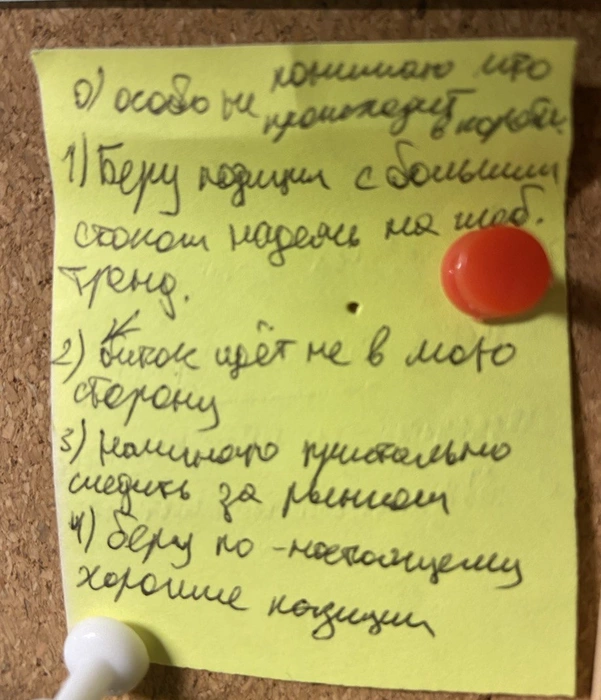 0) особо не понимаю что
происходит в коробк.
1) Беру позиции с большим
стопом надеясь на глоб.
тренд.
2) биток идёт не в мою
сторону
3) начинаю пристально
следить за рынком
4) беру по-настоящему
хорошие позиции